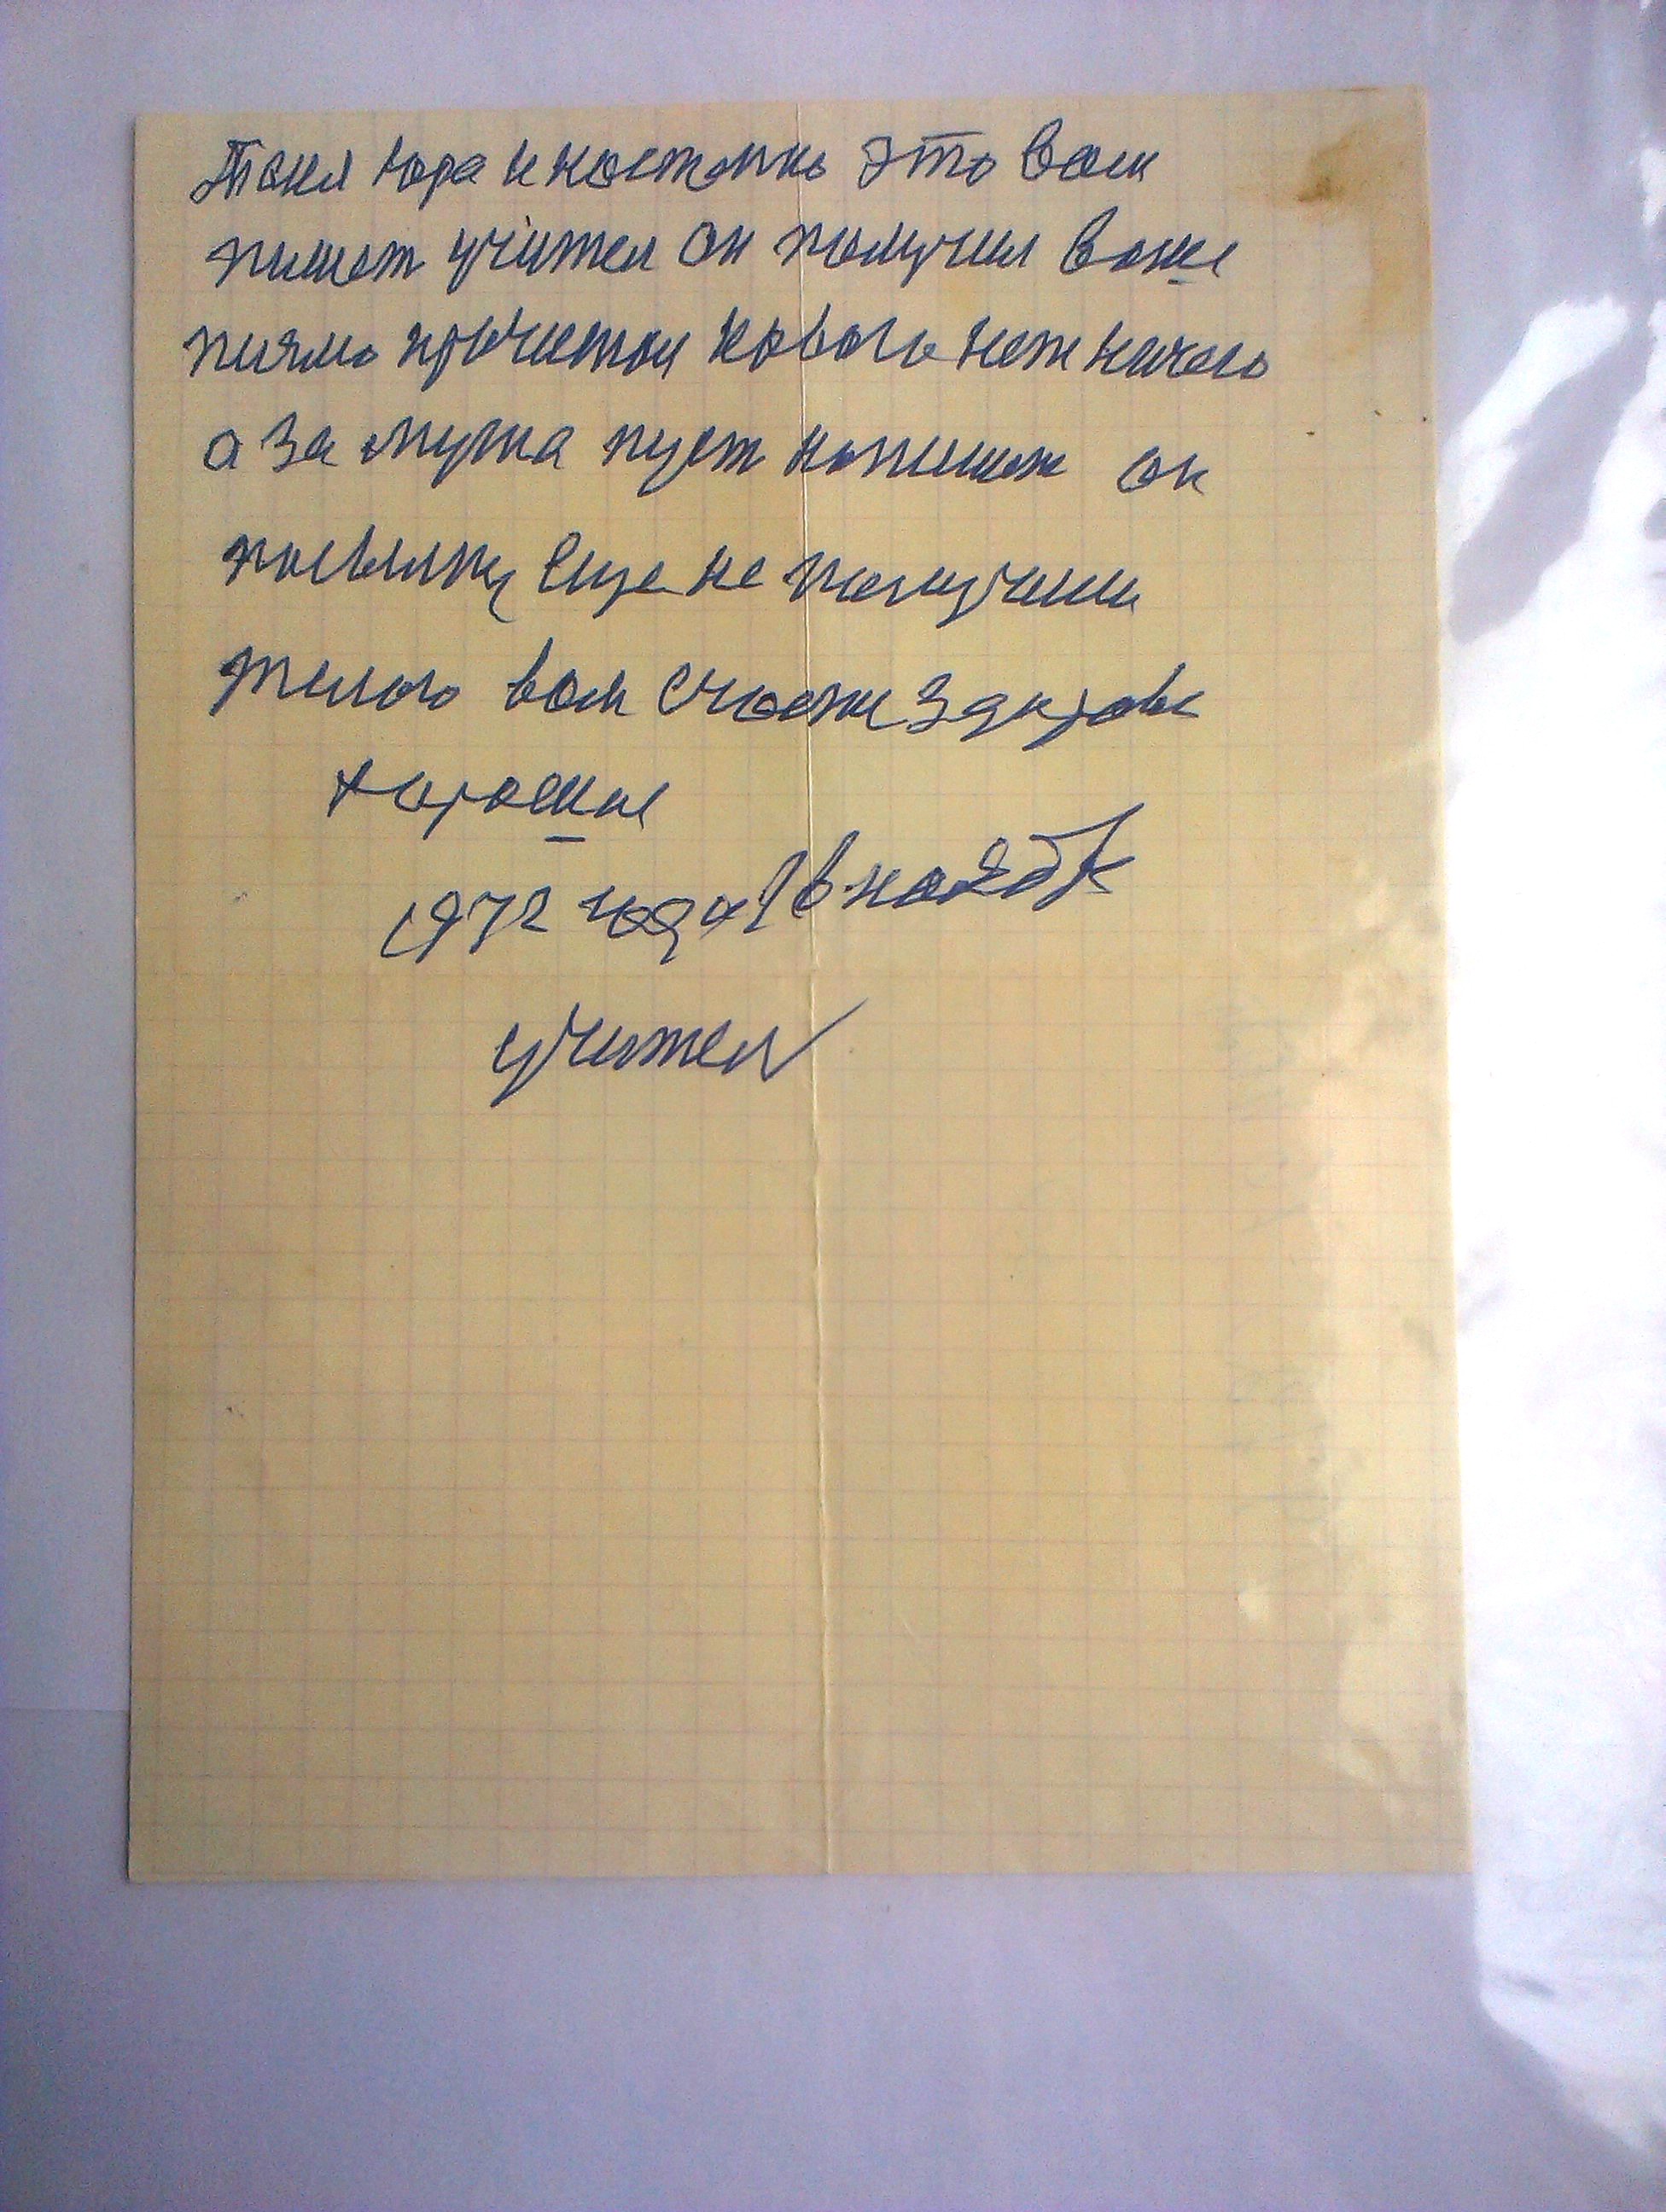 Таня Юра и костянь это вам
пишет учител он получил ваше
писмо прочитал нового нет ничего
а за мужа пуст напишет он
посылку еще не получили
желаю вам счасти здоровя
хорошие
1972 года ноябр
учител